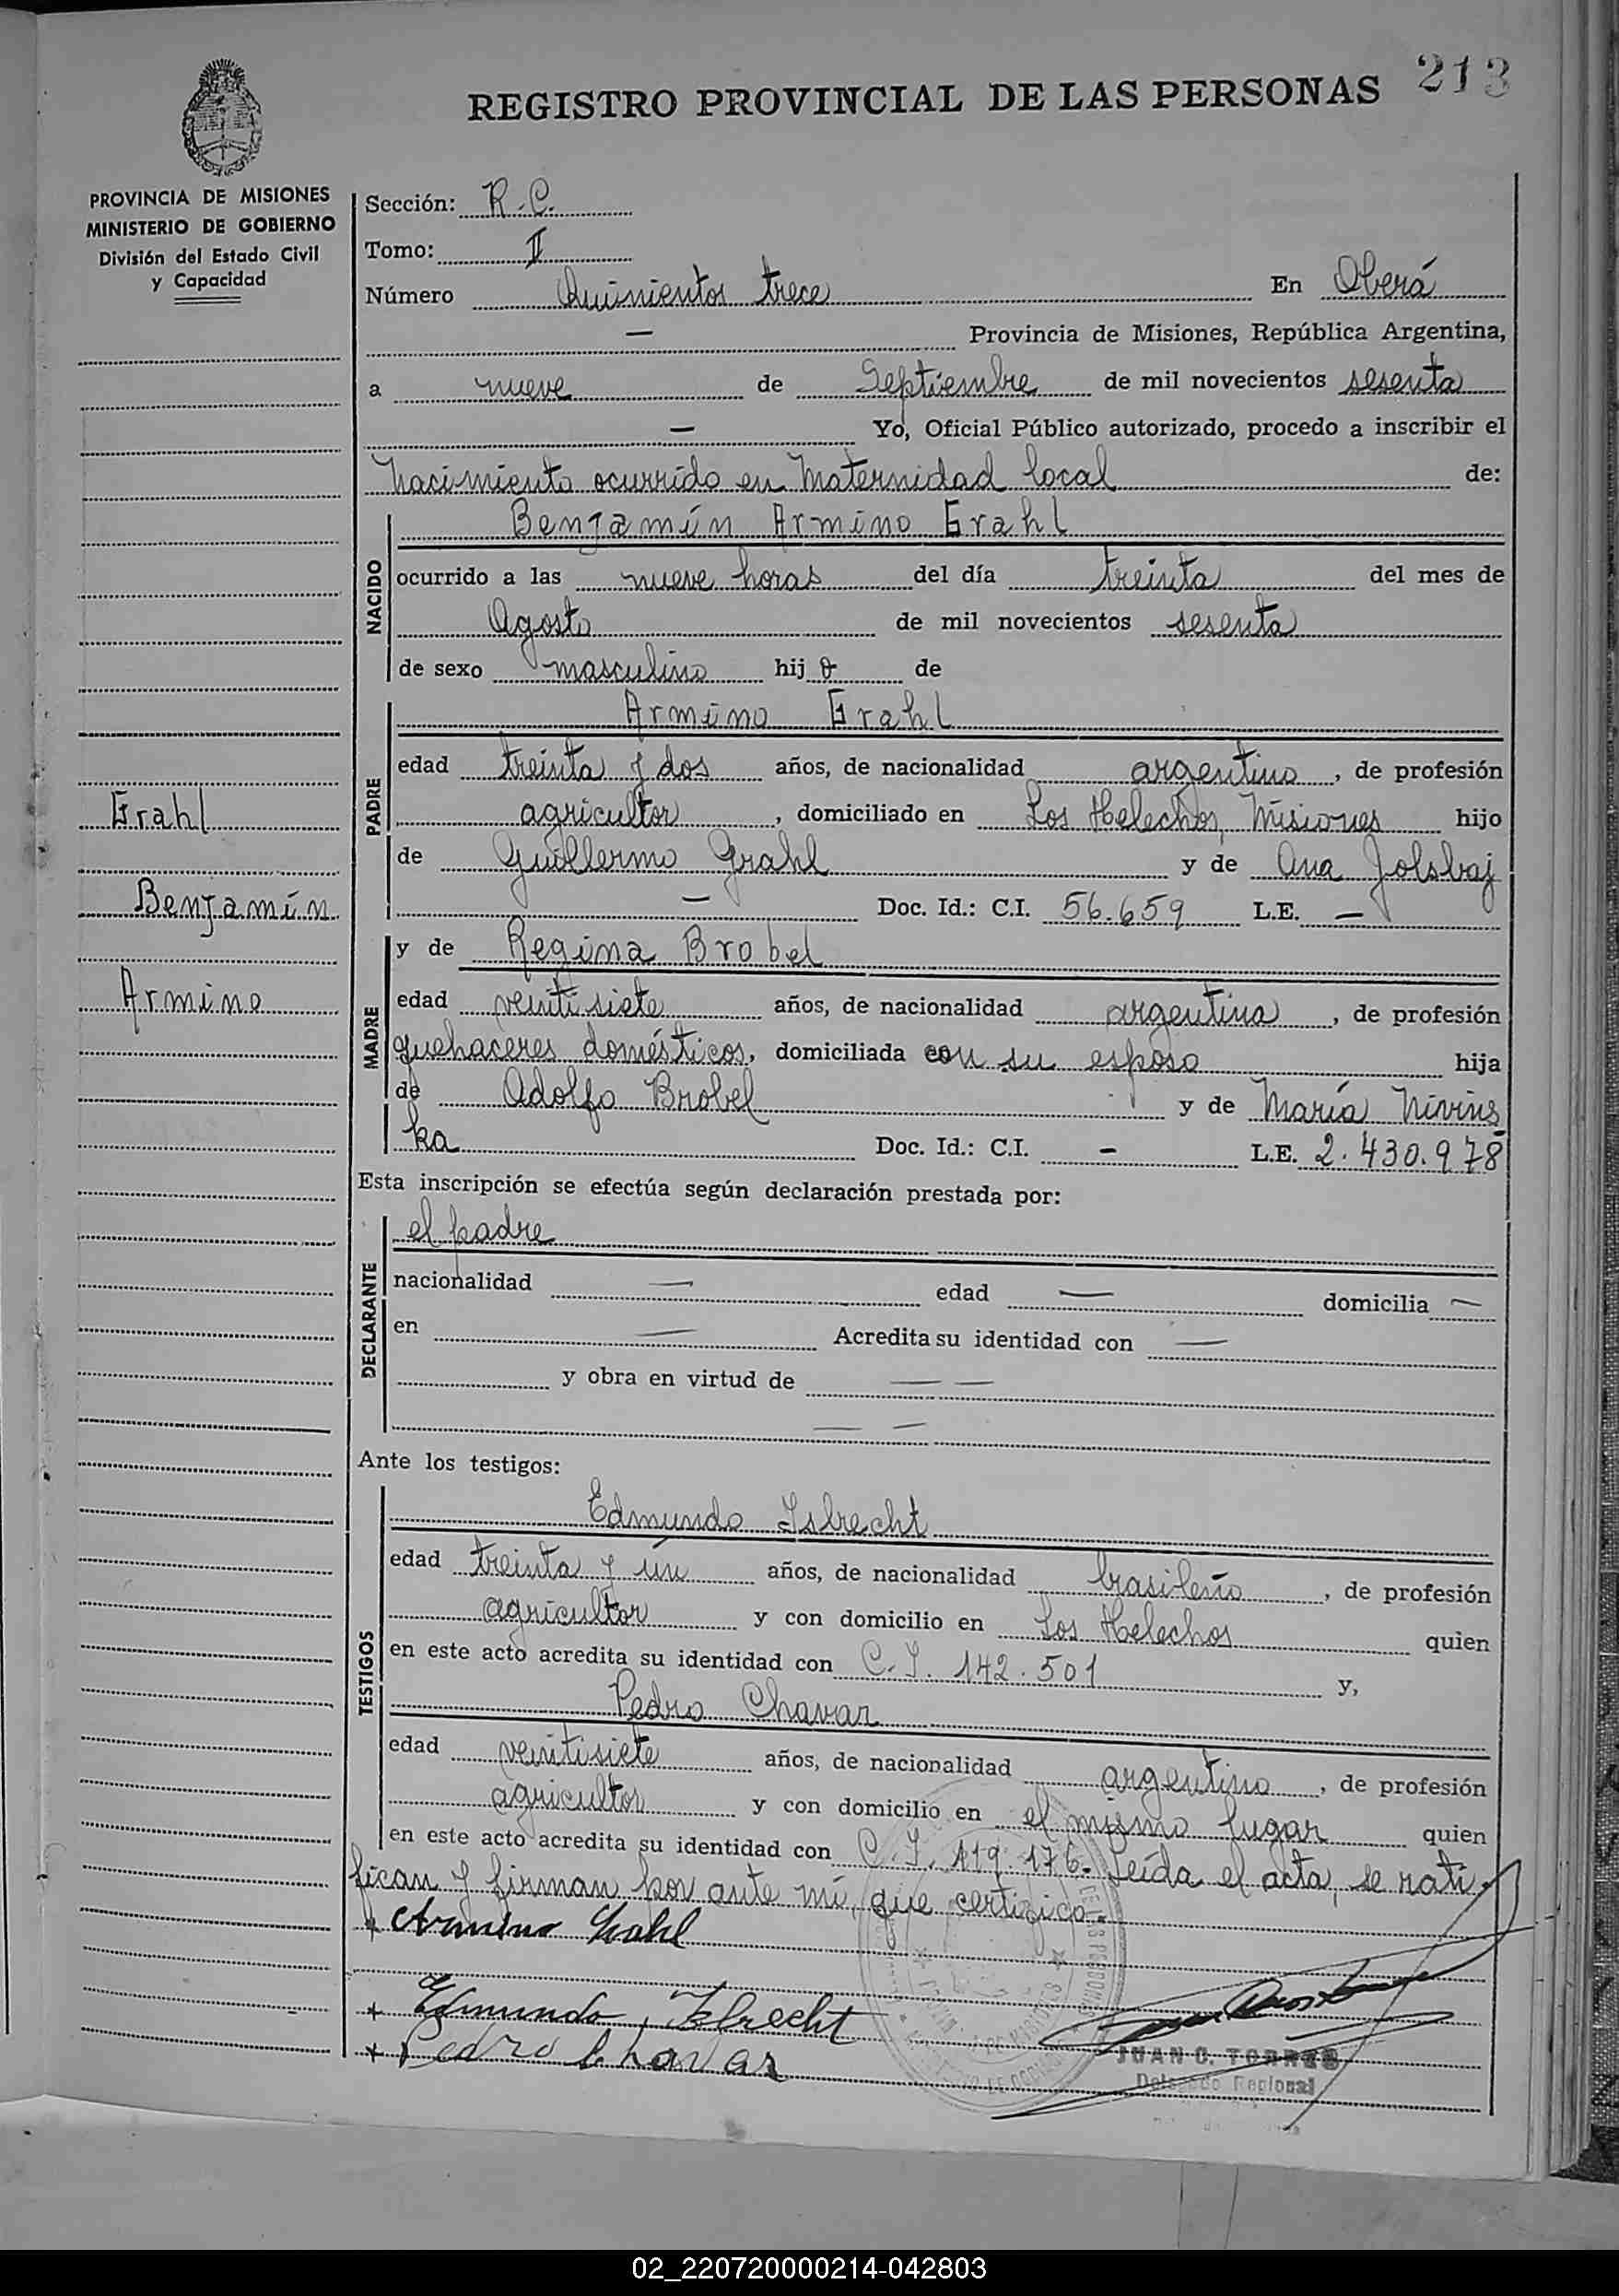 213
REGISTRO PROVINCIAL DE LAS PERSONAS
PROVINCIA DE MISIONES
MINISTERIO DE GOBIERNO
División del Estado Civil
y Capacidad
Sección: R.C.
Tomo: II
Número Quinientos trece En Oberá
— Provincia de Misiones, República Argentina,
a nueve de Septiembre de mil novecientos sesenta
— Yo, Oficial Público autorizado, procedo a inscribir el
Nacimiento ocurrido en Maternidad local de:
NACIDO
Benjamín Armino Grahl
ocurrido a las nueve horas del día treinta del mes de
Agosto de mil novecientos sesenta
de sexo masculino hijo de
PADRE
Armino Grahl
edad treinta y dos años, de nacionalidad argentino, de profesión
agricultor, domiciliado en Los Helechos, Misiones hijo
de Guillermo Grahl y de Ana Jolsbaj
— Doc. Id.: C.I. 56.659 L.E. —
Grahl
Benjamín
Armino
MADRE
y de Regina Brobel
edad veintisiete años, de nacionalidad argentina, de profesión
quehaceres domésticos, domiciliada con su esposo hija
de Adolfo Brobel y de María Nivins
ka Doc. Id.: C.I. — L.E. 2.430.978
Esta inscripción se efectúa según declaración prestada por:
DECLARANTE
el padre
nacionalidad — edad — domicilia —
en — Acredita su identidad con —
y obra en virtud de — —
— —
Ante los testigos:
TESTIGOS
Edmundo Isbrecht
edad treinta y un años, de nacionalidad brasileño, de profesión
agricultor y con domicilio en Los Helechos quien
en este acto acredita su identidad con C.I. 142.501 y,
Pedro Chavar
edad veintisiete años, de nacionalidad argentino, de profesión
agricultor y con domicilio en el mismo lugar quien
en este acto acredita su identidad con C.I. 119.176. Leída el acta, se rati-
fican y firman por ante mí, que certifico.
Armino Grahl
Edmundo Isbrecht
Pedro Chavar
JUAN C. TORRES
Delegado Regional
02_220720000214-042803